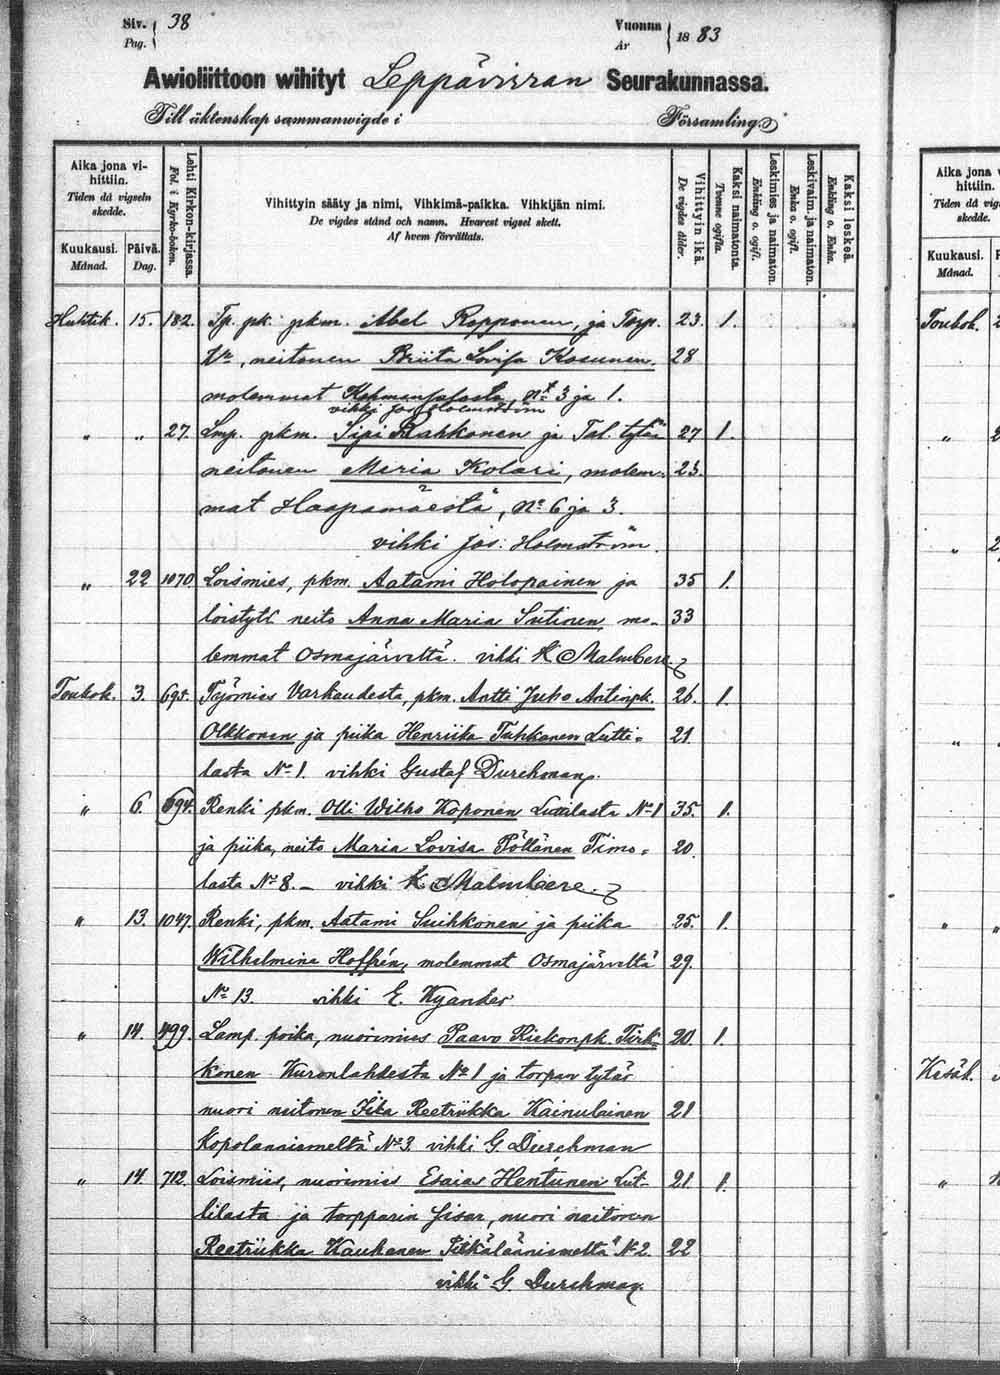 Siv. 38 Vuonna 1883
Pag. År
Awioliittoon wihityt Leppävirran Seurakunnassa.
Till äktenskap sammanwigde i Församling.
Aika jona vihittiin.
Tiden då vigseln skedde.
Kuukausi.
Månad.
Päivä.
Dag.
Lehti Kirkon-kirjassa.
Fol. i Kyrko-boken.
Vihittyin sääty ja nimi, Vihkimä-paikka. Vihkijän nimi.
De vigdes stånd och namn. Hvarest vigsel skett.
Af hvem förrättats.
Vihittyin ikä.
De vigdes ålder.
Kaksi naimatonta.
Tvenne ogifta.
Leskimies ja naimaton.
Enkling o. ogift.
Leskivaim. ja naimaton.
Enka o. ogift.
Kaksi leskeä.
Enkling o. Enka.
Huhtik. 15. 182. pk. pkm. Abel Ropponen, ja Torp. 23. 1.
neitonen Briita Lovisa Kosunen. 28
molemmat No 3 ja 1.
vihki Jos Holmström
" " 27. Lmp. pkm. Sipi Rahkonen ja Tal. tytär 27 1.
neitonen Maria Kolari, molem- 23.
mat Haapamäestä, No 6 ja 3.
vihki Jos. Holmström.
" 22 1070. Loismies, pkm. Aatami Holopainen ja 35 1.
loistytt. neito Anna Maria Sutinen mo- 33
lemmat Osmajärveltä. vihki K Malmberg
Toukok. 3. 695. Työmies Varkaudesta, pkm. Antti Juho Antinpk. 26. 1.
Olkkonen ja piika Henriika Tuhkanen Lutti= 21
lasta No 1. vihki Gustaf Durchman.
" 6. 694. Renki pkm. Olli Wilho Koponen Luttilasta No 1 35. 1.
ja piika, neito Maria Lovisa Pöllänen Timo= 20.
lasta No 8. – vihki K Malmberg.
" 13. 1047. Renki, pkm. Aatami Suihkonen ja piika 25. 1.
Wilhelmina Hoffrén, molemmat Osmajärveltä 29.
No 13. vihki E. Kyander
" 14. 499. Lamp. poika, nuorimies Paavo Kiekonpk. Tirk- 20. 1.
konen Kuronlahdesta No 1 ja torpan tytär
nuori neitonen Fika Reetriikka Kainulainen 21
Kopolanniemeltä No 3. vihki G. Durchman
" 14. 712. Loismies, nuorimies Esaias Hentunen Lut- 21. 1.
tilasta ja torpparin sisar, nuori neitonen
Reetriikka Kaukanen Pitkälänniemeltä No 2. 22
vihki G. Durchman.
Aika jona
hittiin.
Tiden då vig
skedde.
Kuukausi.
Månad.
Toukok.
"
"
"
"
Kesäk.
"